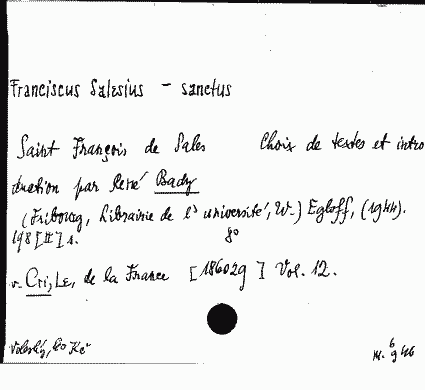 Franciscus Salesius - sanctus
Saint François de Sales Choix de textes et intro
duction par René Bady
(Fribourg, Librairie de l' université, W.) Egloff, (1944).
198 [II] s. 8°
v. Cri, Le, de la France [186029] Vol. 12.